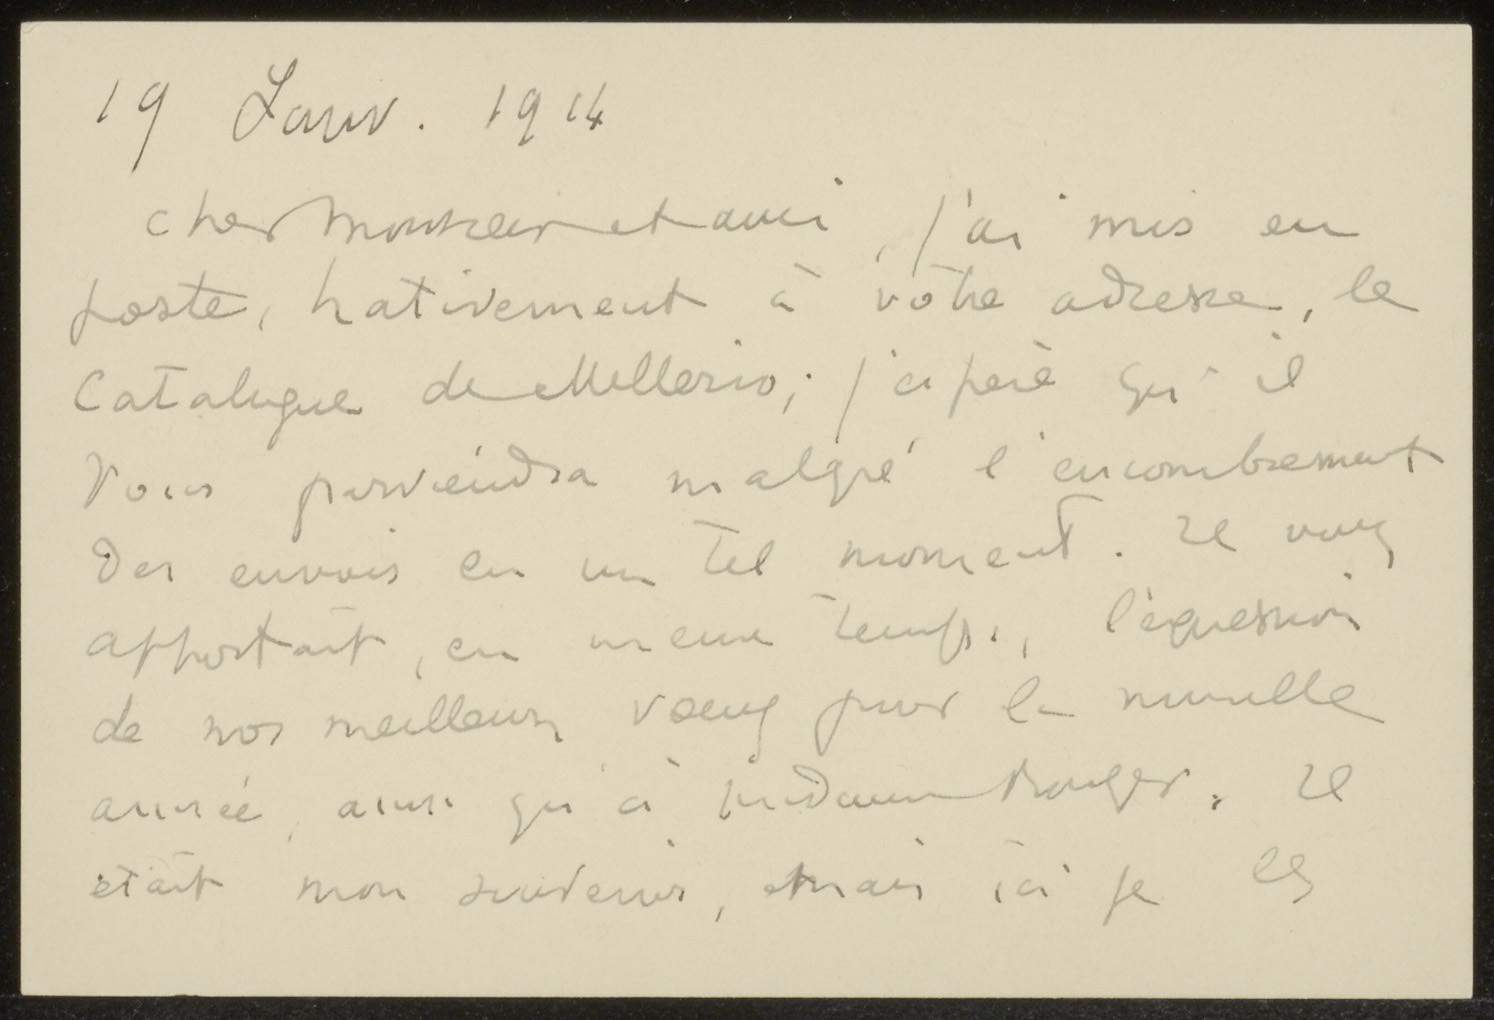 19 Janv. 1914
Cher Monsieur et ami, j'ai mis en
poste, hativement à vôtre adresse, le
Catalogue de Mellerio; j'espère qu'il
vous parviendra malgré l'encombrement
des envois en un tel moment. Il vous
apportait, en meme temps, l'expression
de nos meilleurs vœux pour la nouvelle
année, ainsi qu'à Madame
. Il
était mon souvenir, mais ici je les